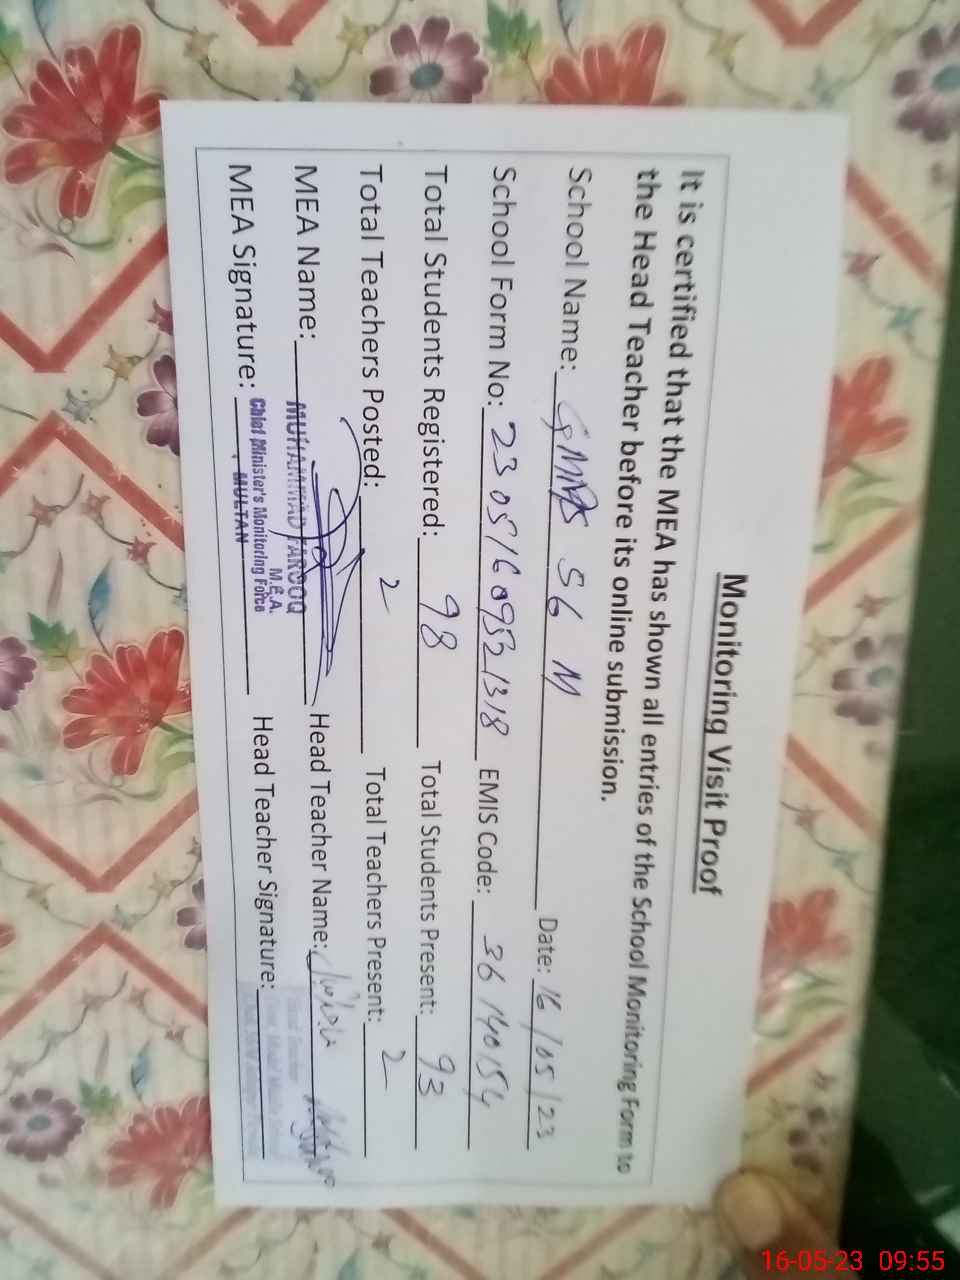 Monitoring Visit Proof
It is certified that the MEA has shown all entries of the School Monitoring Form to
the Head Teacher before its online submission.
School Name: GMMS 56 M Date: 16/05/23
School Form No: 23051609521318 EMIS Code: 36140154
Total Students Registered: 98 Total Students Present: 93
Total Teachers Posted: 2 Total Teachers Present: 2
MEA Name: MUHAMMAD FAROOQ Head Teacher Name:
M.E.A.
MEA Signature: Chief Minister's Monitoring Force Head Teacher Signature: Head Teacher
MULTAN
16-05-23 09:55